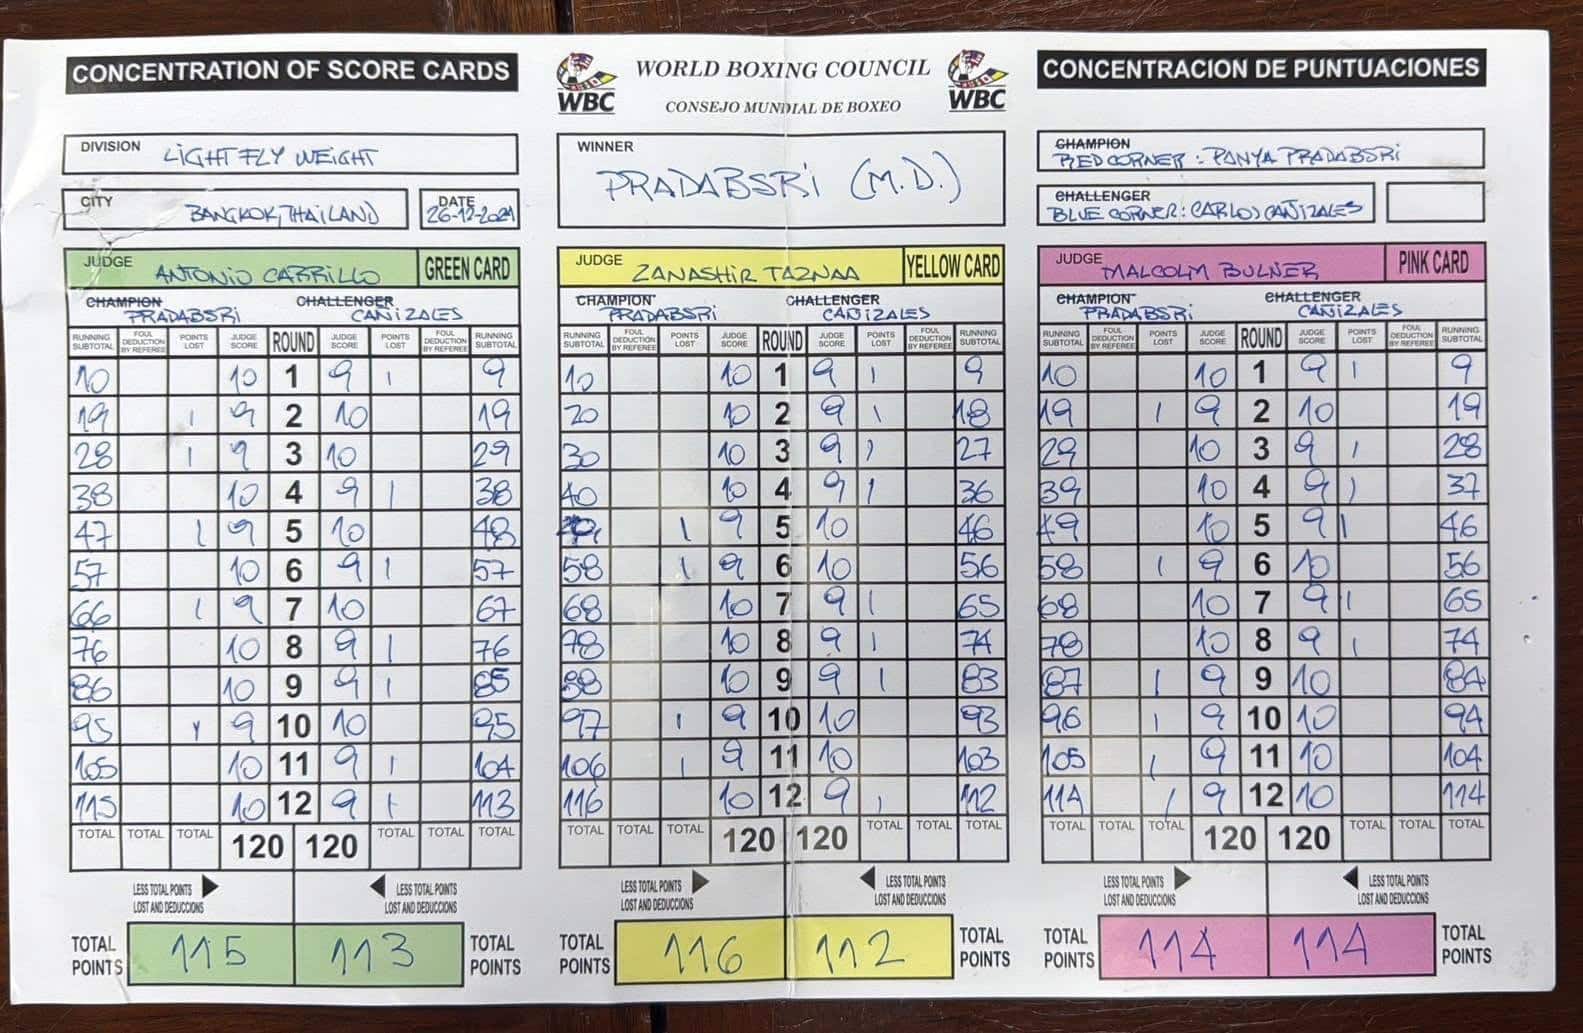 CONCENTRATION OF SCORE CARDS
WORLD BOXING COUNCIL
CONSEJO MUNDIAL DE BOXEO
WBC
WBC
CONCENTRACION DE PUNTUACIONES
DIVISION LIGHT FLY WEIGHT
CITY BANGKOK, THAILAND
DATE 26-12-2021
WINNER
PRADABSRi (M.D.)
CHAMPION
RED CORNER : PANYA PRADABSRi
CHALLENGER
BLUE CORNER: CARLOS CAÑIZALES
JUDGE ANTONIO CARRILLO GREEN CARD
CHAMPION CHALLENGER
PRADABSRi CAÑIZALES
RUNNING SUBTOTAL FOUL DEDUCTION BY REFEREE POINTS LOST JUDGE SCORE ROUND JUDGE SCORE POINTS LOST FOUL DEDUCTION BY REFEREE RUNNING SUBTOTAL
10 10 1 9 1 9
19 1 9 2 10 19
28 1 9 3 10 29
38 10 4 9 1 38
47 1 9 5 10 48
57 10 6 9 1 57
66 1 9 7 10 67
76 10 8 9 1 76
86 10 9 9 1 85
95 1 9 10 10 95
105 10 11 9 1 104
115 10 12 9 1 113
TOTAL TOTAL TOTAL 120 120 TOTAL TOTAL TOTAL
LESS TOTAL POINTS LESS TOTAL POINTS
LOST AND DEDUCCIONS LOST AND DEDUCCIONS
TOTAL POINTS 115 113 TOTAL POINTS
JUDGE ZANASHIR TAZNAA YELLOW CARD
CHAMPION CHALLENGER
PRADABSRi CAÑIZALES
RUNNING SUBTOTAL FOUL DEDUCTION BY REFEREE POINTS LOST JUDGE SCORE ROUND JUDGE SCORE POINTS LOST FOUL DEDUCTION BY REFEREE RUNNING SUBTOTAL
10 10 1 9 1 9
20 10 2 9 1 18
30 10 3 9 1 27
40 10 4 9 1 36
1 9 5 10 46
58 1 9 6 10 56
68 10 7 9 1 65
78 10 8 9 1 74
88 10 9 9 1 83
97 1 9 10 10 93
106 1 9 11 10 103
116 10 12 9 1 112
TOTAL TOTAL TOTAL 120 120 TOTAL TOTAL TOTAL
LESS TOTAL POINTS LESS TOTAL POINTS
LOST AND DEDUCCIONS LOST AND DEDUCCIONS
TOTAL POINTS 116 112 TOTAL POINTS
JUDGE MALCOLM BULNER PINK CARD
CHAMPION CHALLENGER
PRADABSRi CAÑIZALES
RUNNING SUBTOTAL FOUL DEDUCTION BY REFEREE POINTS LOST JUDGE SCORE ROUND JUDGE SCORE POINTS LOST FOUL DEDUCTION BY REFEREE RUNNING SUBTOTAL
10 10 1 9 1 9
19 1 9 2 10 19
29 10 3 9 1 28
39 10 4 9 1 37
49 10 5 9 1 46
58 1 9 6 10 56
68 10 7 9 1 65
78 10 8 9 1 74
87 1 9 9 10 84
96 1 9 10 10 94
105 1 9 11 10 104
114 1 9 12 10 114
TOTAL TOTAL TOTAL 120 120 TOTAL TOTAL TOTAL
LESS TOTAL POINTS LESS TOTAL POINTS
LOST AND DEDUCCIONS LOST AND DEDUCCIONS
TOTAL POINTS 114 114 TOTAL POINTS